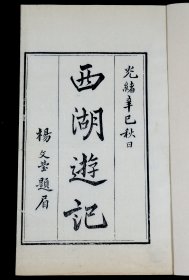 光緒辛巳秋日
西湖遊記
楊文瑩題眉